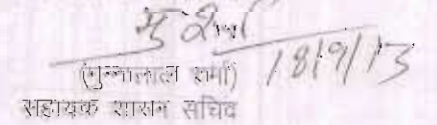 18/9/13
(मुन्नालाल शर्मा)
सहायक शासन सचिव